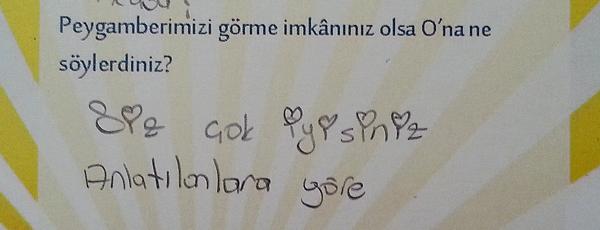 Peygamberimizi görme imkânınız olsa O'na ne
söylerdiniz?
Siz çok iyisiniz
Anlatılanlara göre